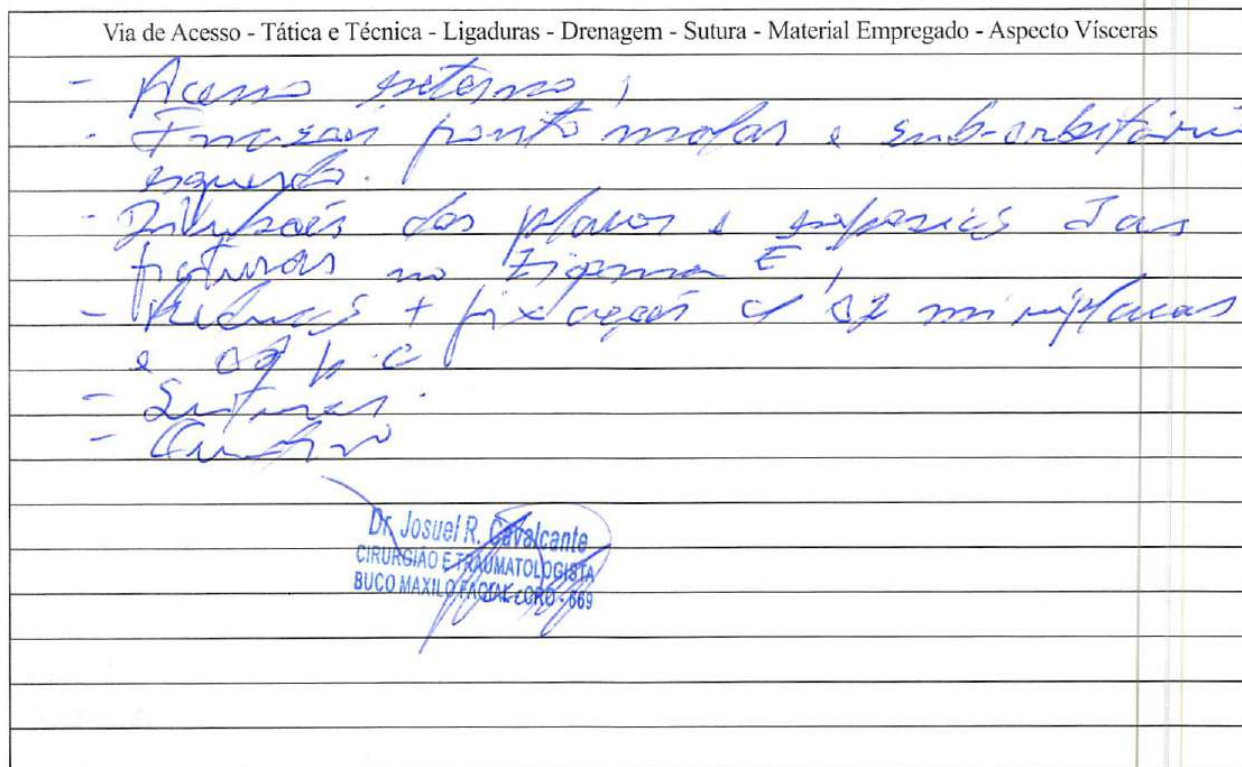 Via de Acesso - Tática e Técnica - Ligaduras - Drenagem - Sutura - Material Empregado - Aspecto Vísceras
- Acesso externo
- Incisão fronto malar e sub-orbitário
esquerdo.
- Divulsão dos planos e exposição das
fraturas no Zigoma E
- Redução + fixação c/ 02 miniplacas
e
- Suturas.
- Curativo
Dr. Josuel R. Cavalcante
CIRURGIÃO E TRAUMATOLOGISTA
BUCO MAXILO FACIAL CRO - 669